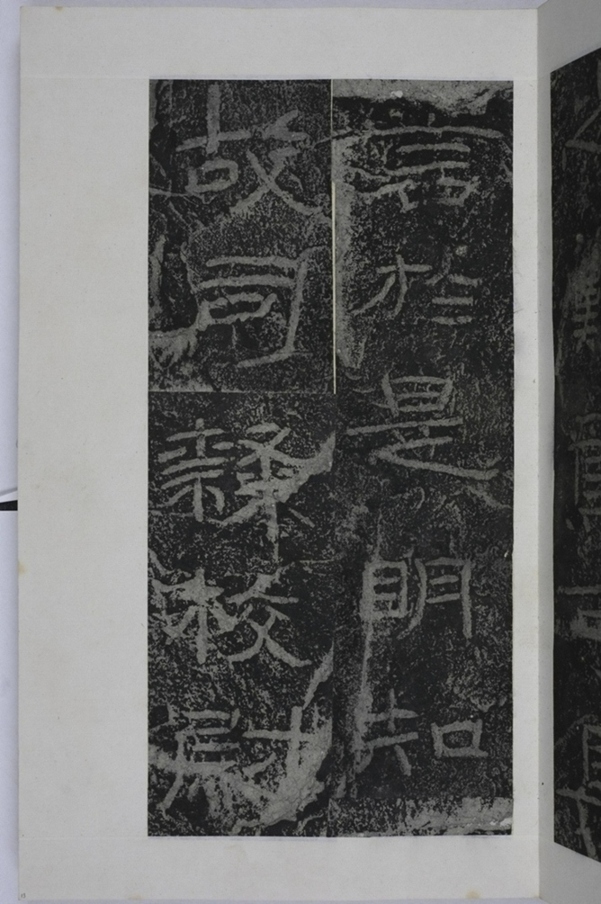 言於是明知
故司隸校尉